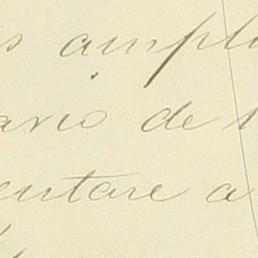 s ampl
ario de
entare a